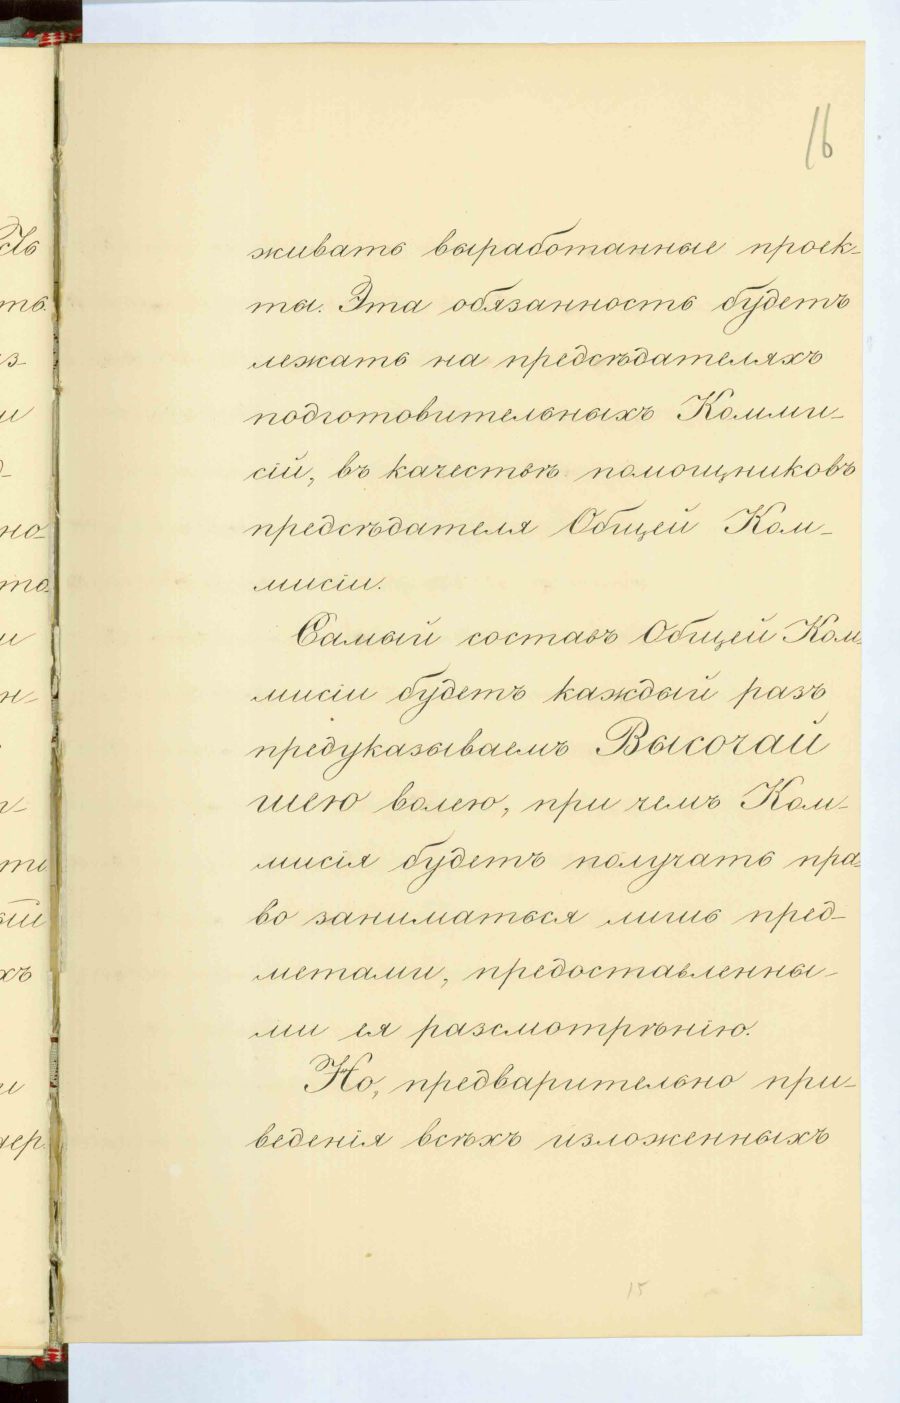 16
живать выработанные проек-
ты. Эта обязанность будетъ
лежать на предсѣдателяхъ
подготовительныхъ Комми-
сій, въ качествѣ помощниковъ
предсѣдателя Общей Ком-
мисіи.
Самый составъ Общей Ком-
мисіи будетъ каждый разъ
предуказываемъ Высочай
шею волею, при чемъ Ком-
мисія будетъ получать пра-
во заниматься лишь пред-
метами, предоставленны-
ми ея разсмотрѣнію.
Но, предварительно при-
веденія всѣхъ изложенныхъ
15